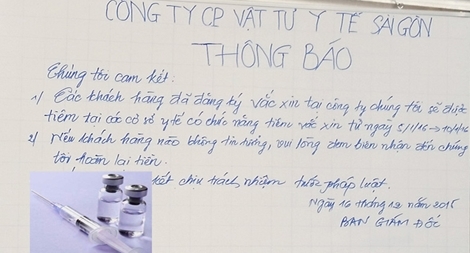 CÔNG TY CP VẬT TƯ Y TẾ SÀI GÒN
THÔNG BÁO
Chúng tôi cam kết:
1/ Các khách hàng đã đăng ký vắc xin tại công ty chúng tôi sẽ được
tiêm tại các cơ sở y tế có chức năng tiêm vắc xin từ ngày 5/1/16 →
2/ Nếu khách hàng nào không tin tưởng, vui lòng đem biên nhận đến chúng
tôi hoàn lại tiền.
kết chịu trách nhiệm trước pháp luật.
Ngày 16 tháng 12 năm 2015
BAN GIÁM ĐỐC